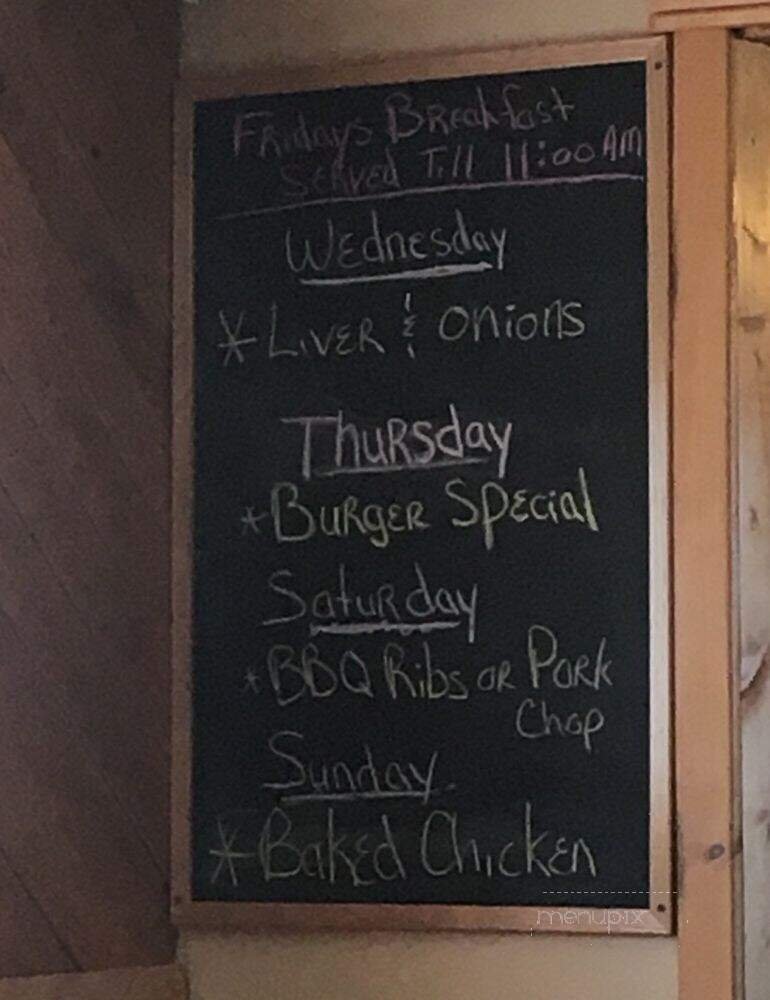 Fridays Breakfast
Served Till 11:00 AM
Wednesday
* Liver & Onions
Thursday
* Burger Special
Saturday
* BBQ Ribs or Pork
Chop
Sunday
* Baked Chicken
menupix